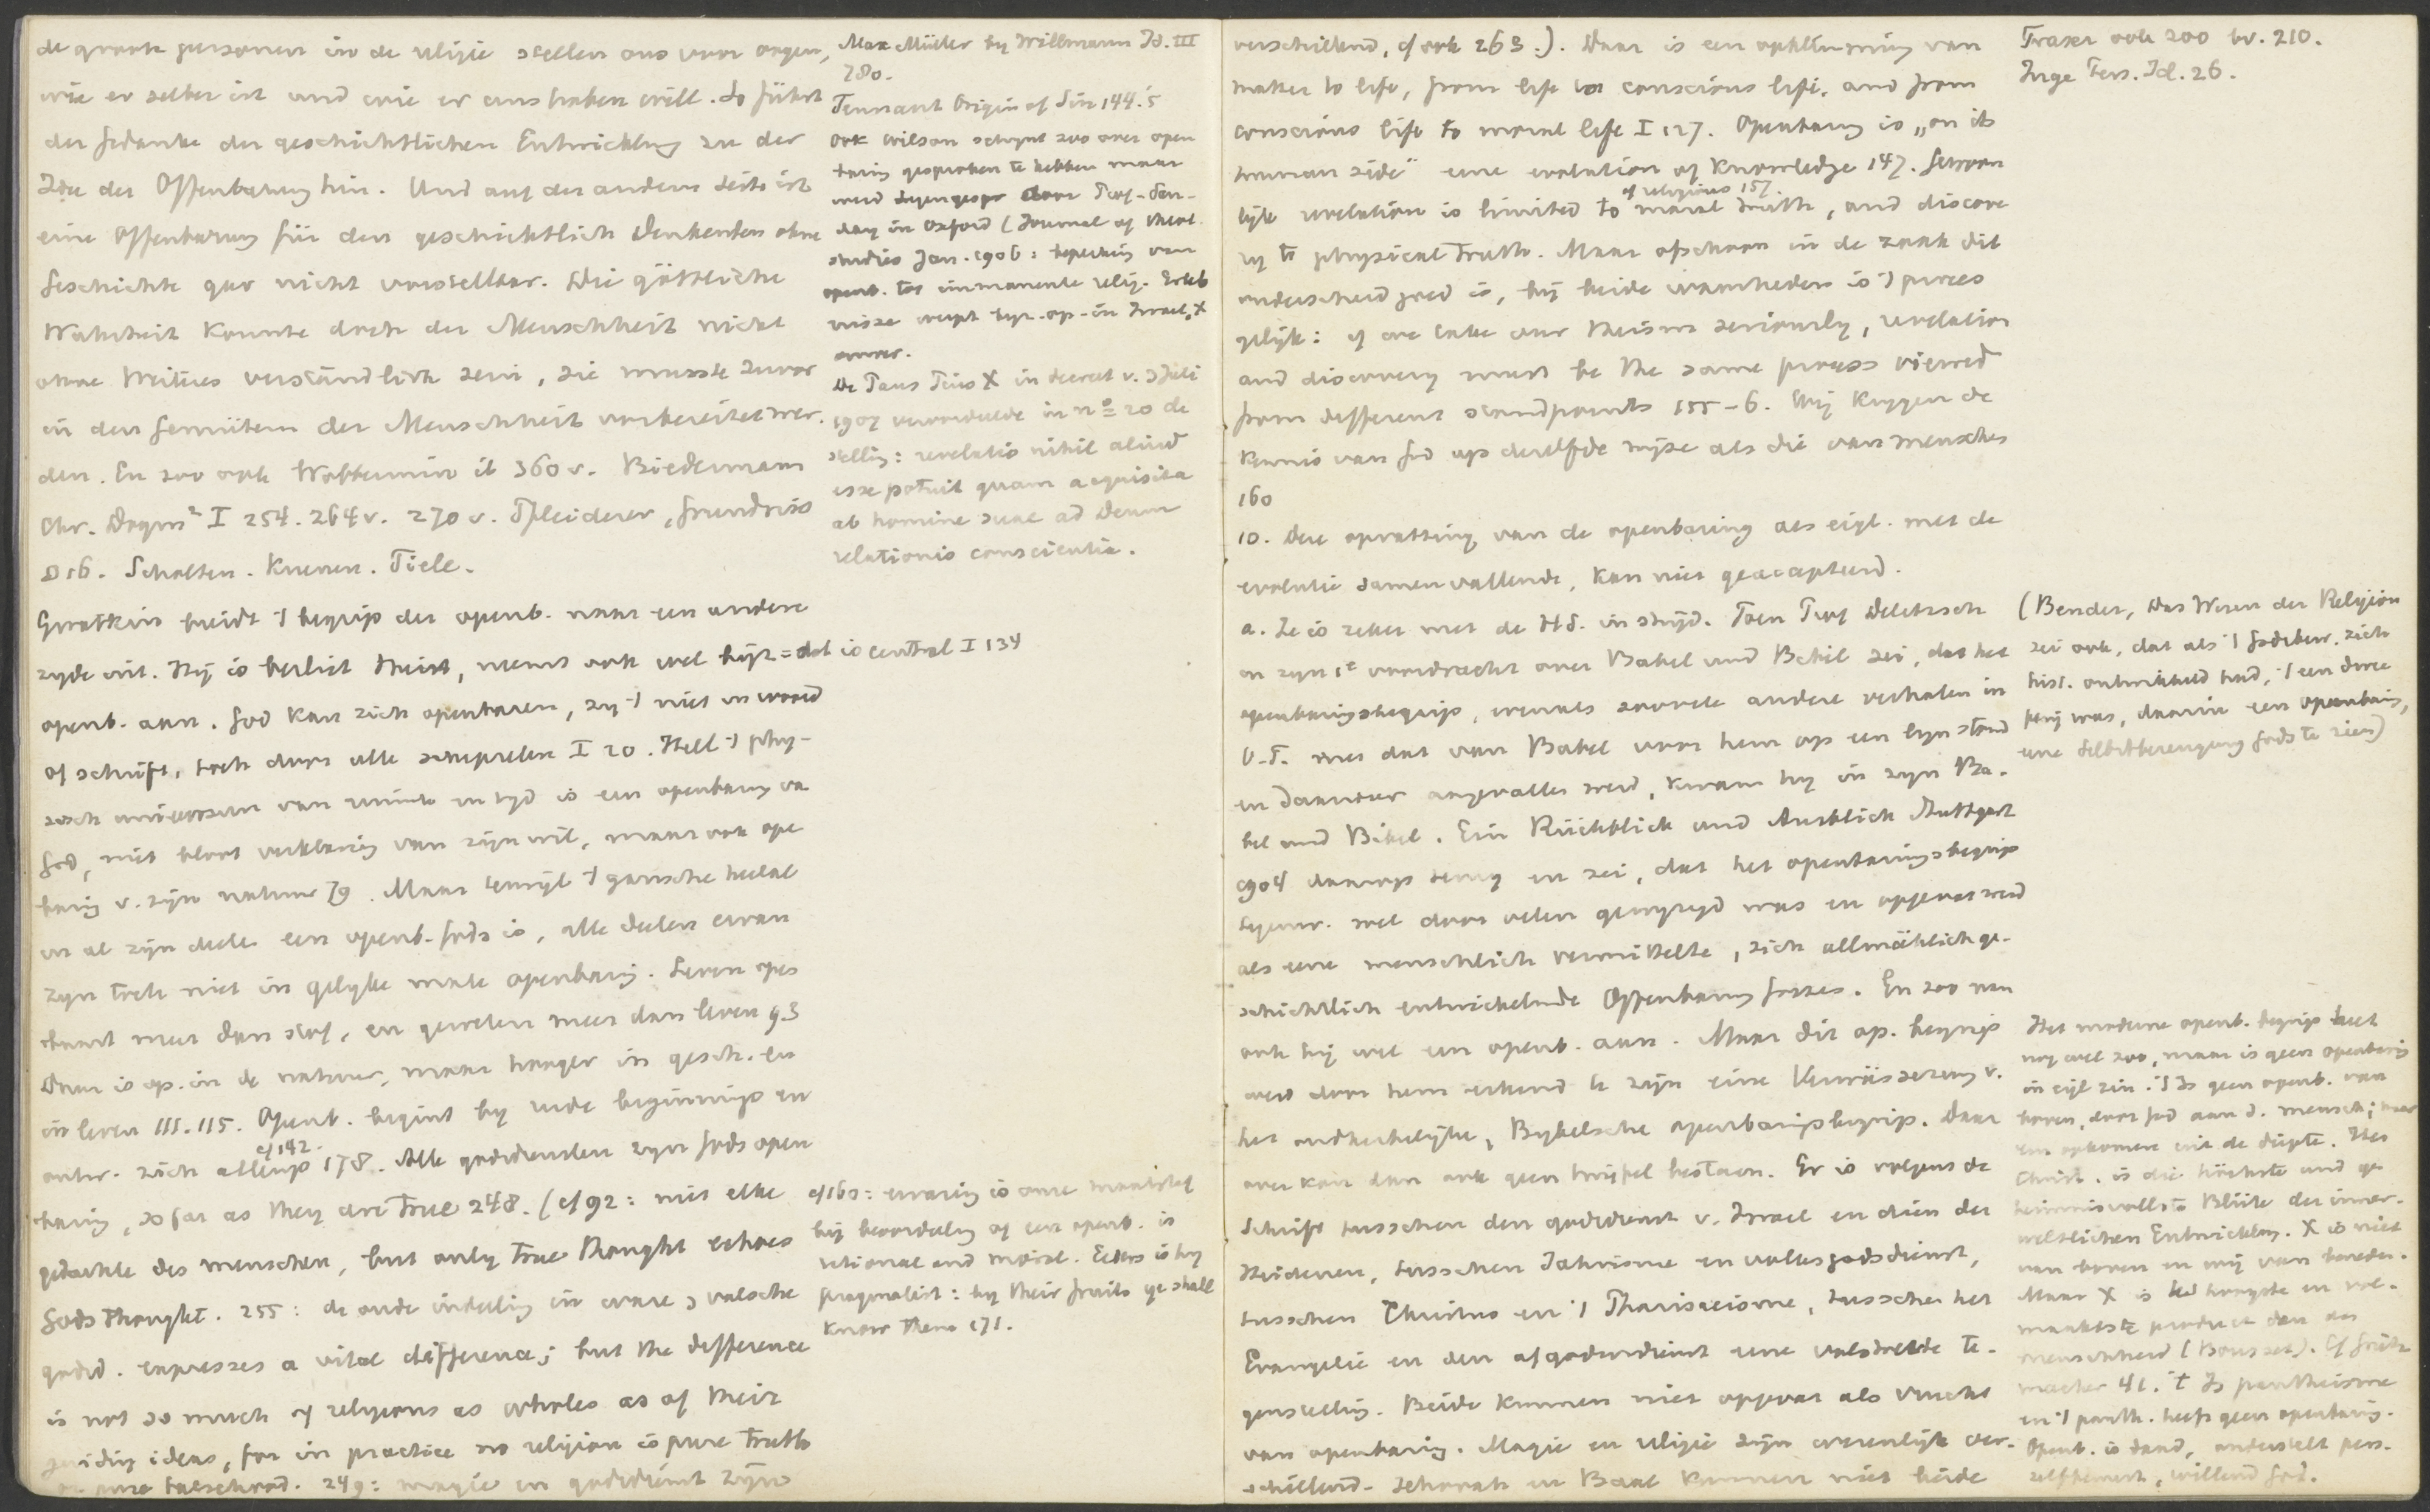 de groote personen in de religie stellen ons voor oogen,
wie er selber ist und wie er uns haben will. So führt
der Gedanke der geschichtlichen Entwicklung zu der
Idee der Offenbarung hin. Und auf der andern Seite ist
eine Offenbarung für den geschichtlich Denkenden ohne
Geschichte gar nicht vorstellbar. Die göttliche
Wahrheit konnte doch der Menschheit nicht
ohne Weitres verständlich sein, sie musste zuvor
in den Gemütern der Menschheit vorbereitet wer-
den. En zoo ook Wobbermin ib 360 v. Biedermann
Chr. Dogm² I 254. 264 v. 270 v. Pfleiderer, Grundriss
§ 16. Scholten. Kuenen. Tiele.
Gwatkin breidt 't begrip der openb. naar een andere
zyde uit. Hij is beslist theist, neemt ook wel byz = dat is central I 134
openb. aan. God kan zich openbaren, zy 't niet in woord
of schrift, toch door alle schepselen I 20. Heel 't phy-
sisch universum van ruimte en tyd is een openbaring va
God, niet bloot verklaring van zijn wil, maar ook open
baring v. zijn natuur 79. Maar terwijl 't gansche heelal
in al zijn deelen een openb. Gods is, alle deelen ervan
zyn toch niet in gelyke mate openbaring. Leven open
baart meer dan stof, en geweten meer dan leven 93
Daar is op. in de natuur, maar hooger in gesch. en
in leven 111. 115. Openb. begint by rude beginnings en
cf 142.
ontw. zich allengs 178. Alle godsdiensten zyn Gods open
baring, so far as they are true 248. (cf 92: niet elke
gedachte des menschen, but only true thought echoes
Gods thought. 255: de oude indeeling in ware & valsche
godsd. expresses a vital difference; but the difference
is not so much of religions as wholes as of their
guiding ideas, for in practice no religion is pure truth
or pure falsehood. 249: magie en godsdienst zijn
Max Müller by Willmann Id. III
780.
Tennant Origin of Sin 144.'5
Ook Wilson schynt zoo over open
baring gesproken te hebben maar
werd tegengespr door Prof. San-
day in Oxford (Journal of theol.
studies Jan. 1906: beperking van
openb. tot immanente relig. Erleb
nisse werpt byz. op. in Israel, X
omver.
De Paus Pius X in decreet v. 3 Juli
1907 veroordeelde in nº 20 de
stelling: revelatio nihil aliud
esse potuit quam acquisita
ab homine suae ad Deum
relationis conscientia.
cf 160: ervaring is onze maatstaf
bij beoordeeling of een openb. is
rational and moral. Eldes is hy
pragmatist: by their fruits ye shall
know them 171.
verschillend, cf ook 263.). Daar is een opklimming van
matter to life, from life to conscious life, and from
conscious life to moral life I 127. Openbaring is „on its
human side" eene evolution of knowledge 147. Gewoon
of religious 157.
lyk revelation is limited to moral truth, and discove
ry to physical truth. Maar ofschoon in de zaak dit
onderscheid goed is, bij beide waarheden is 't proces
gelijk: if we take our theism seriously, revelation
and discovery must be the same process viewed
from different standpoints 155-6. Wij krygen de
kennis van God op dezelfde wijze als die van menschen
160
10. Deze opvatting van de openbaring als eigl. met de
evolutie samenvallende, kan niet geaccepteerd.
a. Ze is zeker met de H.S. in strijd. Toen Prof Delitzsch
in zyn 1e voordracht over Babel und Bibel zei, dat het
openbaringsbegrip, evenals zoovele andere verhalen in
O.T. met dat van Babel voor hem op een lyn stond
en daarover aangevallen werd, kwam hy in zyn Ba-
bel und Bibel. Ein Rückblick und Ausblick Stuttgart
1904 daarop terug en zei, dat het openbaringsbegrip
tegenw. wel door velen gewyzigd was en opgevat werd
als eene menschlich vermittelte, sich allmählich ge-
schichtlich entwickelnde Offenbarung Gottes. En zoo nam
ook hij wel een openb. aan. Maar dit op. begrip
werd door hem erkend te zijn eine Verwässerung v.
het oudkerkelijke, Bybelsche openbaringsbegrip. Daar
over kan dan ook geen twijfel bestaan. Er is volgens de
Schrift tusschen den godsdienst v. Israel en dien der
Heidenen, tusschen Jahvisme en volksgodsdienst,
tusschen Christus en 't Pharizeisme, tusschen het
Evangelie en den afgodendienst eene volstrekte te-
genstelling. Beide kunnen niet opgevat als vrucht
van openbaring. Magie en religie zijn wezenlijk ver-
schillend. Jehovah en Baal kunnen niet beide
Fraser ook 200 bv. 210.
Inge Pers. Id. 26.
(Bender, Das Wesen der Religion
zei ook, dat als 't Godsbew. zich
hist. ontwikkeld had, 't een dwee
perij was, daarin een openbaring,
eene Selbstbezeugung Gods te zien)
Het moderne openb. begrip heet
nog wel zoo, maar is geen openbaring
in eigl. zin. 't Is geen openb. van
boven, door God aan d. mensch; maar
een opkomen uit de diepte. Het
Christ. is die höchste und ge
heimnisvollste Blüte der inner-
weltlichen Entwicklung. X is niet
van boven en wij van beneden.
Maar X is het hoogste en vol-
maaktste product der
menschheid (Bousset). Cf Grütz
macher 41. 't Is pantheisme
en 't panth. heeft geen openbaring.
Openb. is daad, onderstelt pers.
zelfbewust, willend God.